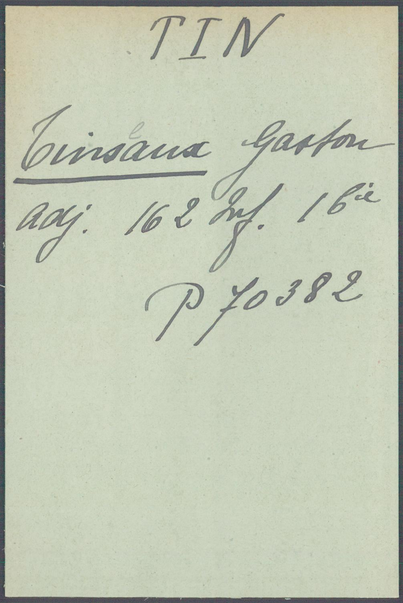 TIN
Tinsaux Gaston
adj. 162 Inf. 1 Cie
P 70382